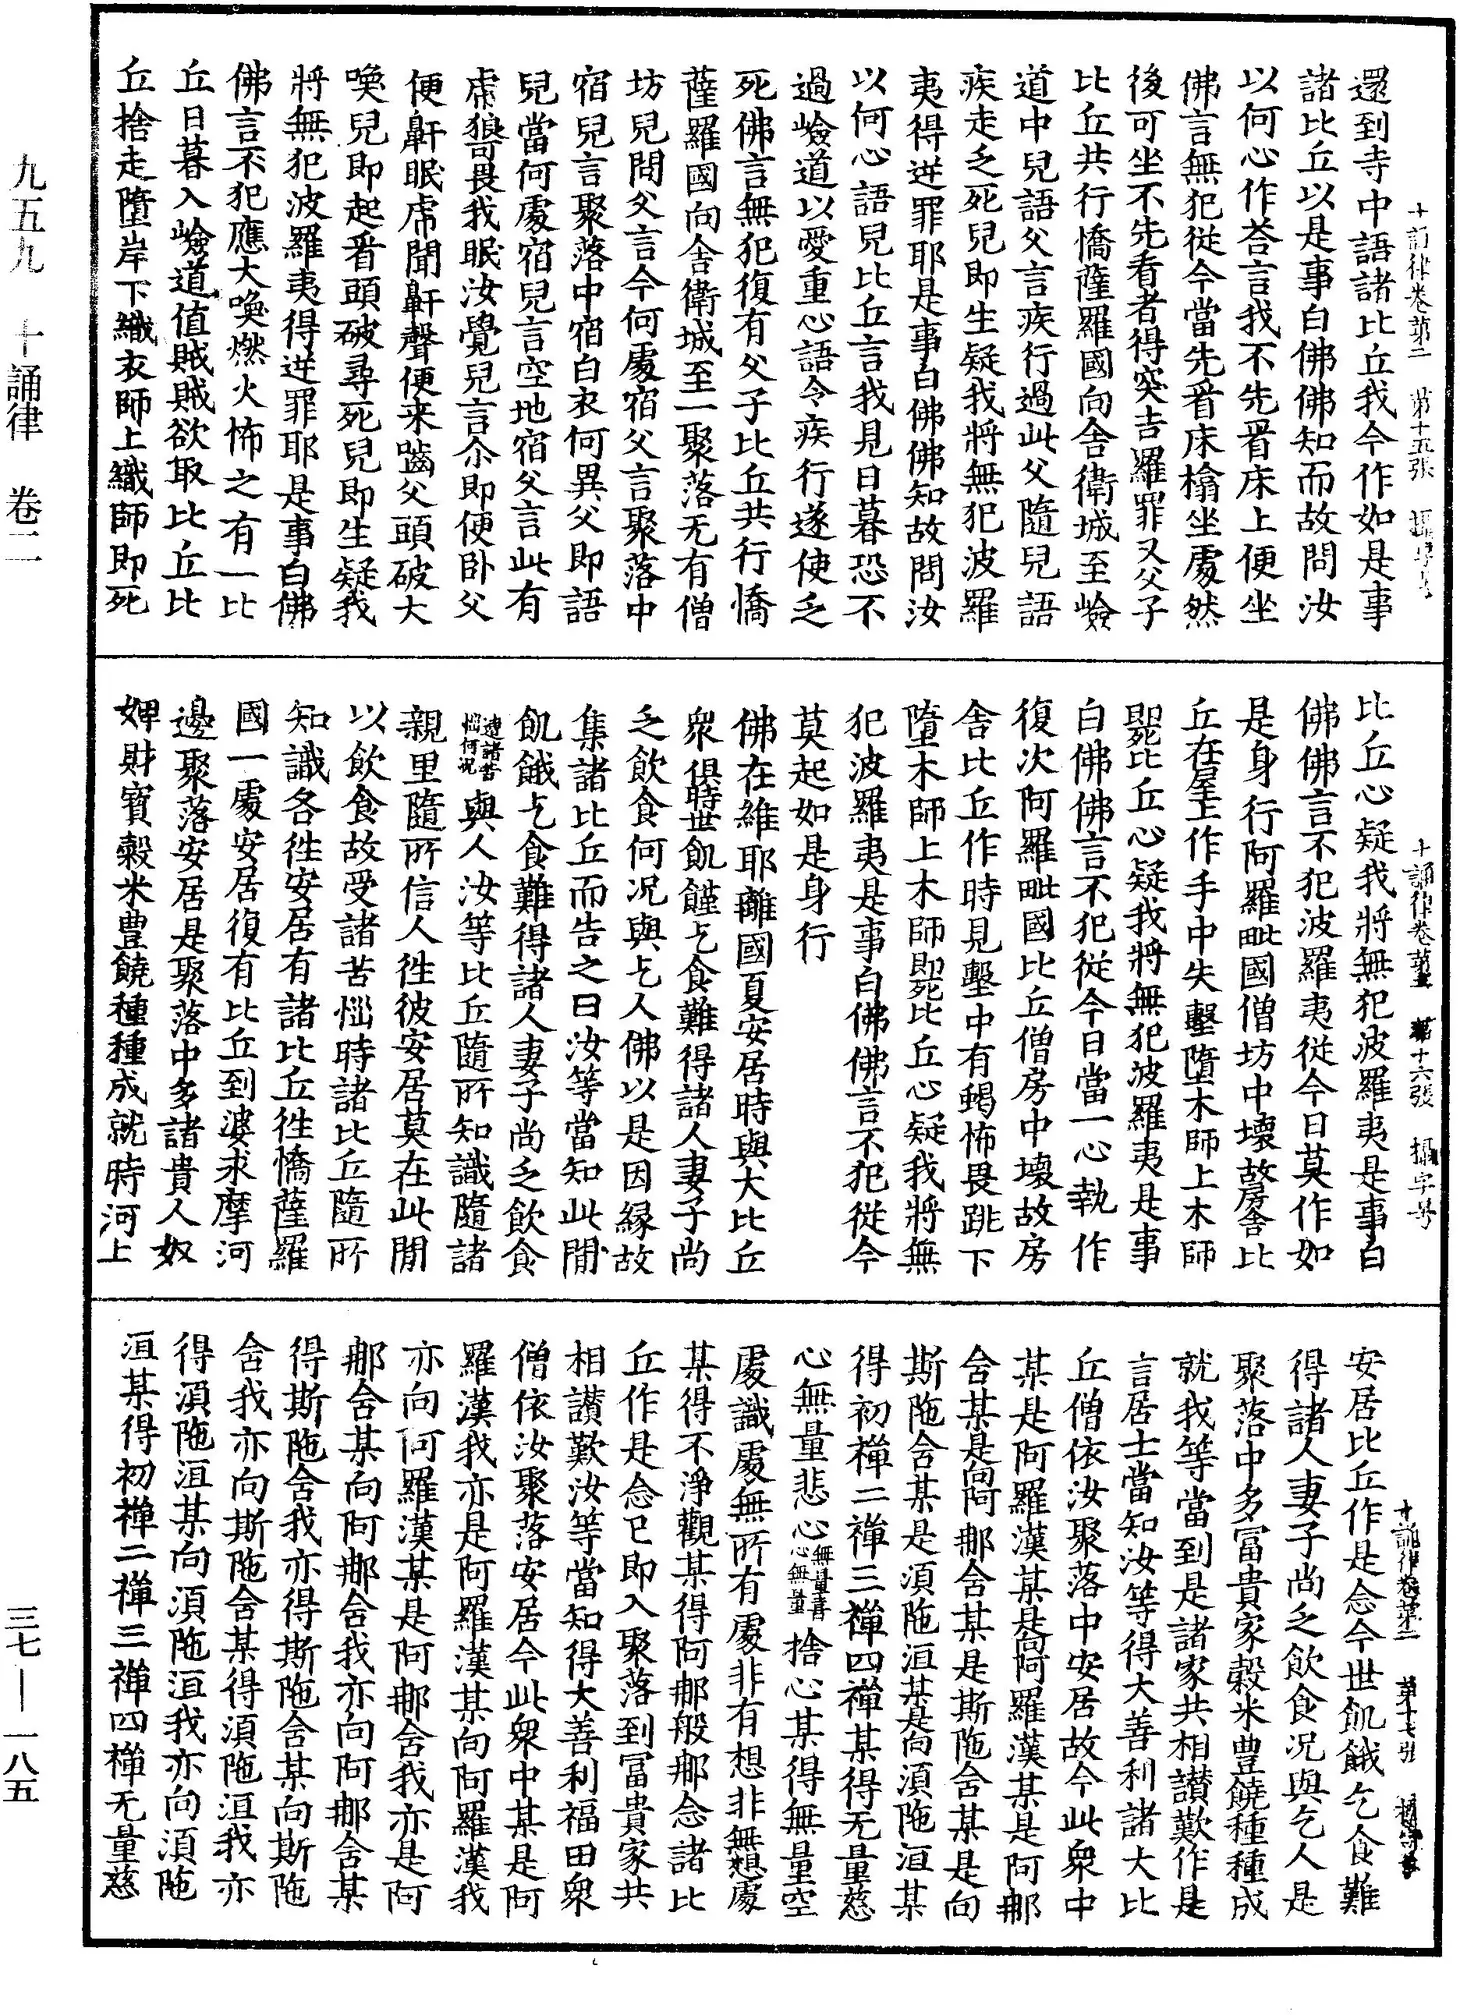 還到寺中語諸比丘我今作如是事
諸比丘以是事白佛佛知而故問汝
以何心作荅言我不先㸔床上便坐
佛言無犯從今當先㸔床榻坐處然
後可坐不先看者得突吉羅罪又父子
比丘共行憍薩羅國向舍衛城至嶮
道中兒語父言疾行過此父隨兒語
疾走乏死兒即生疑我將無犯波羅
夷得逆罪耶是事白佛佛知故問汝
以何心語兒比丘言我見日暮恐不
過嶮道以愛重心語令疾行遂使乏
死佛言無犯復有父子比丘共行憍
薩羅國向舍衛城至一聚落无有僧
坊兒問父言今何處宿父言聚落中
宿兒言聚落中宿白衣何異父即語
兒當何處宿兒言空地宿父言此有
虎狼哥畏我眠汝覺兒言尒即便卧父
便鼾眠虎聞鼾聲便来嚙父頭破大
喚兒即起㸔頭破尋死兒即生疑我
將無犯波羅夷得逆罪耶是事白佛
佛言不犯應大喚燃火怖之有一比
丘日暮入嶮道值賊賊欲取比丘比
丘捨走墮岸下織衣師上織師即死
比丘心疑我將無犯波羅夷是事白
佛佛言不犯波羅夷從今日莫作如
是身行阿羅毗國僧坊中壞故房舍比
丘在屋上作手中失墼墮木師上木師
即死比丘心疑我將無犯波羅夷是事
白佛佛言不犯從今日當一心執作
復次阿羅毗國比丘僧房中壞故房
舍比丘作時見墼中有蝎怖畏跳下
墮木師上木師即死比丘心疑我將無
犯波羅夷是事白佛佛言不犯從今
莫起如是身行
佛在維耶離國夏安居時與大比丘
衆俱時世飢饉乞食難得諸人妻子尚
乏飲食何况與乞人佛以是因縁故
集諸比丘而告之曰汝等當知此閒
飢餓乞食難得諸人妻子尚乏飲食
遭諸苦惱何况與人汝等比丘隨所知識隨諸
親里隨所信人徃彼安居莫在此閒
以飲食故受諸苦惱時諸比丘隨所
知識各徃安居有諸比丘徃憍薩羅
國一處安居復有比丘到婆求摩河
邊聚落安居是聚落中多諸貴人奴
婢財寳穀米豊饒種種成就時河上
安居比丘作是念今世飢餓乞食難
得諸人妻子尚乏飲食况與乞人是
聚落中多冨貴家穀米豊饒種種成
就我等當到是諸家共相讃歎作是
言居士當知汝等得大善利諸大比
丘僧依汝聚落中安居故今此衆中
某是阿羅漢某是向阿羅漢某是阿那
舍某是向阿那舍某是斯陁含某是向
斯陁含某是湏陁洹某是向湏陁洹某
得初禪二禪三禪四禪某得无量慈
心無量悲心無量喜心無量捨心某得無量空
處識處無所有處非有想非無想處
某得不淨觀某得阿那般那念諸比
丘作是念已即入聚落到冨貴家共
相讃歎汝等當知得大善利福田衆
僧依汝聚落安居今此衆中某是阿
羅漢我亦是阿羅漢某向阿羅漢我
亦向阿羅漢某是阿那舍我亦是阿
那舍某向阿那舍我亦向阿那舍某
得斯陁含我亦得斯陁含某向斯陁
含我亦向斯陁含某得湏陁洹我亦
得湏陁洹某向湏陁洹我亦向湏陁
洹某得初禪二禪三禪四禪无量慈
十誦律卷第二 第十五張
十誦律卷第二 第十六張 攝字号
十誦律卷第二 第十七張
九五九 十誦律 卷二
三七—一八五